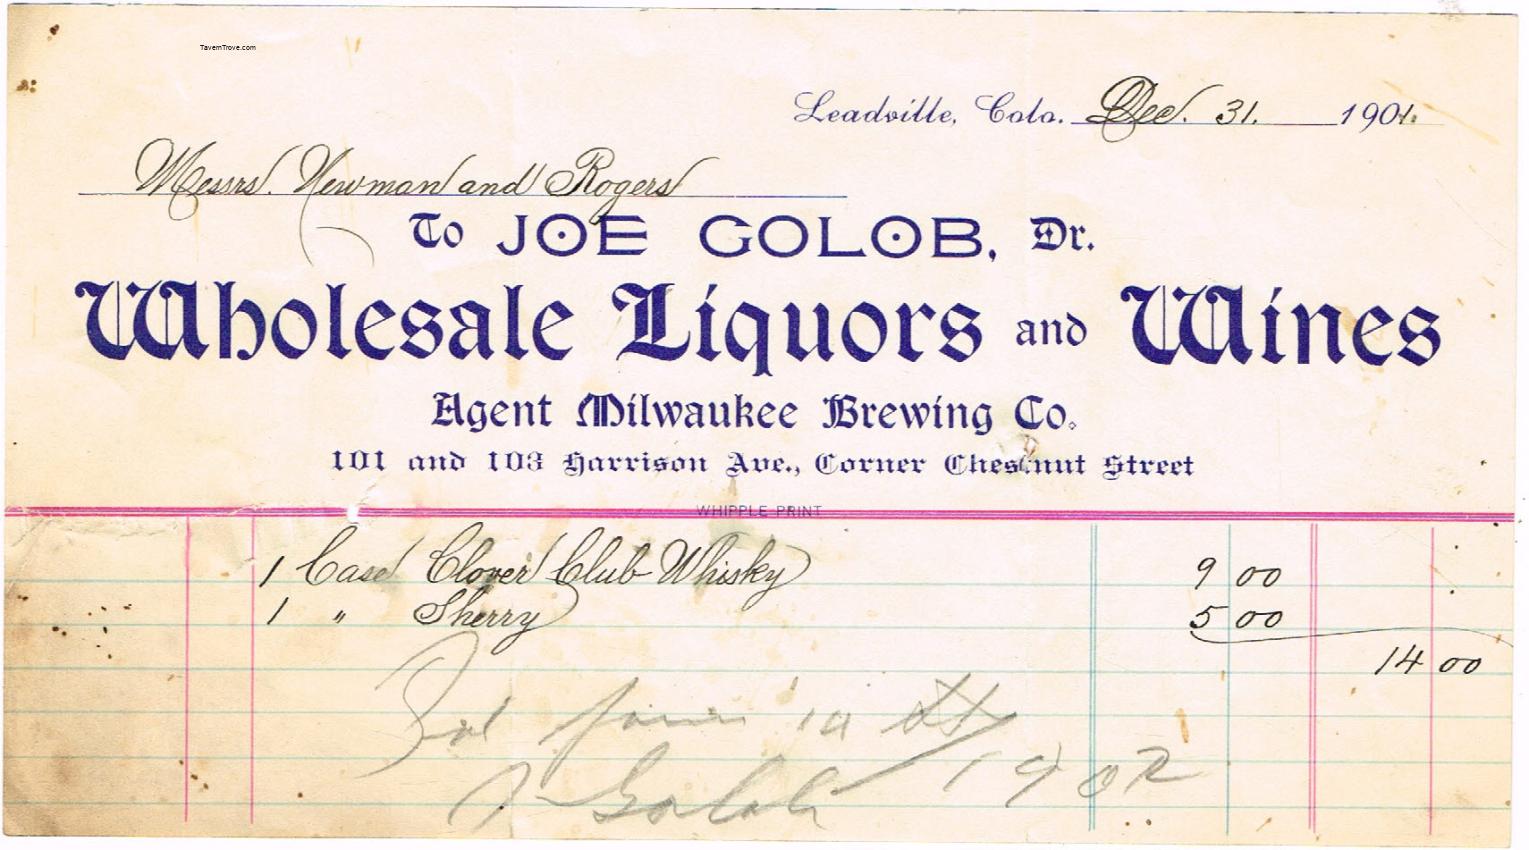 TavernTrove.com
Leadville, Colo. Dec. 31. 1901.
Messrs. Newman and Rogers
To JOE GOLOB, Dr.
Wholesale Liquors and Wines
Agent Milwaukee Brewing Co.
101 and 103 Harrison Ave., Corner Chestnut Street
WHIPPLE PRINT
1 Case Clover Club Whisky 9 00
1 " Sherry 5 00
14 00
1902
J Golob